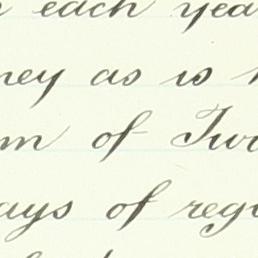 each yea
ney as is
m of Tw
ays of regu